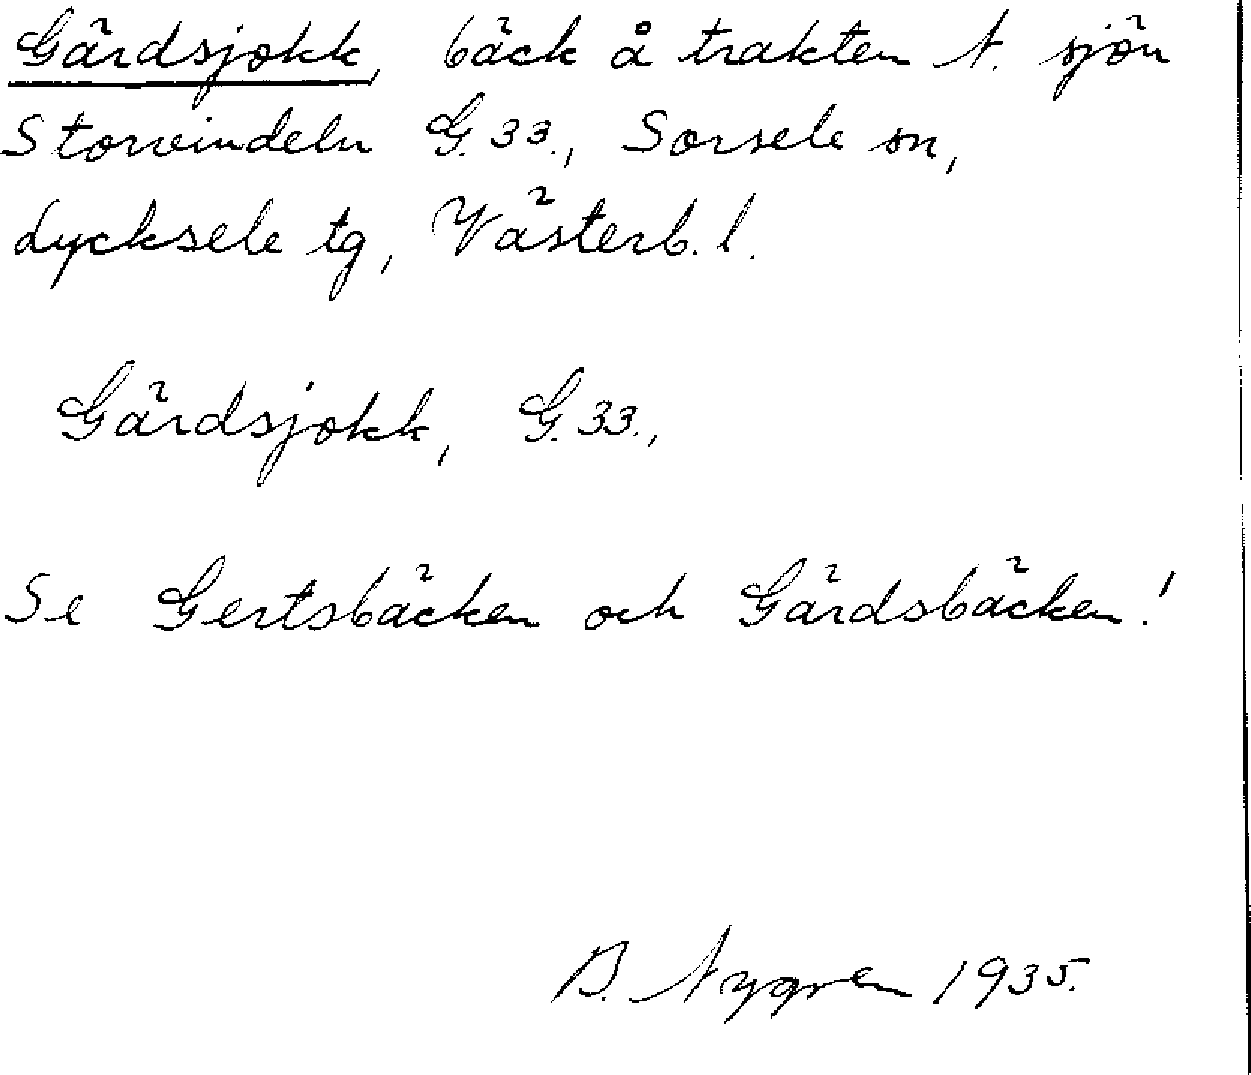 Gärdsjokk, bäck å trakten N. sjön
Storvindeln G. 33., Sorsele sn,
Lycksele tg, Västerb. l.
Gärdsjokk, G. 33.,
Se Gertsbäcken och Gärdsbäcken!
B. Nygren 1935.